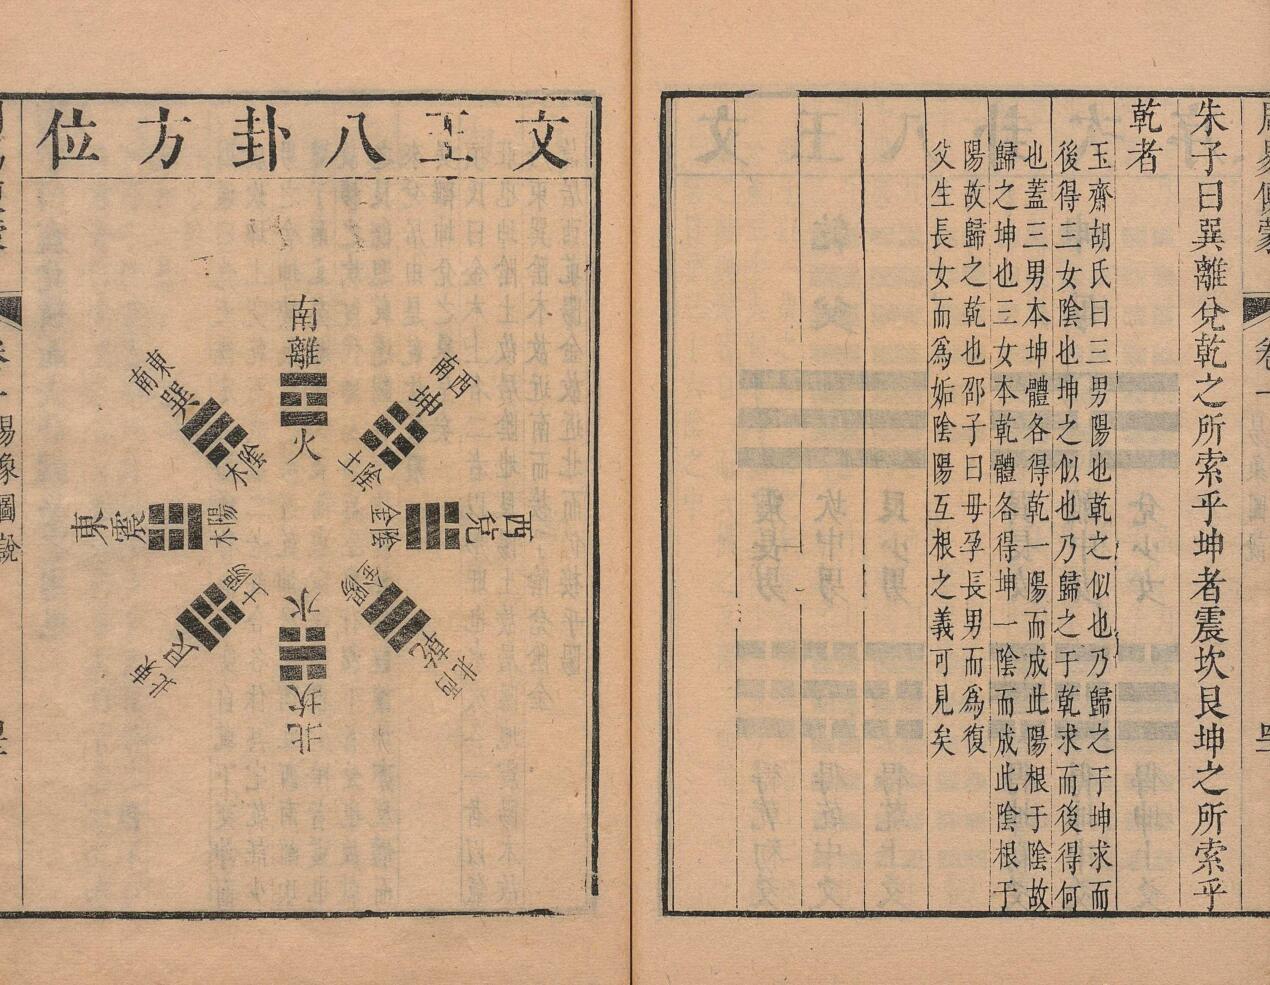 朱子曰巽離兌乾之所索乎坤者震坎艮坤之所索乎
乾者
玉齋胡氏曰三男陽也乾之似也乃歸之于坤求而
後得三女陰也坤之似也乃歸之于乾求而後得何
也蓋三男本坤體各得乾一陽而成此陽根于陰故
歸之坤也三女本乾體各得坤一陰而成此陰根于
陽故歸之乾也邵子曰母孕長男而爲復
父生長女而爲姤陰陽互根之義可見矣
卷一
文王八卦方位
南
離
火
西南
坤
陰土
西
兌
陰金
西北
乾
陽金
北
坎
水
東北
艮
陽土
東
震
陽木
東南
巽
陰木
易象圖說